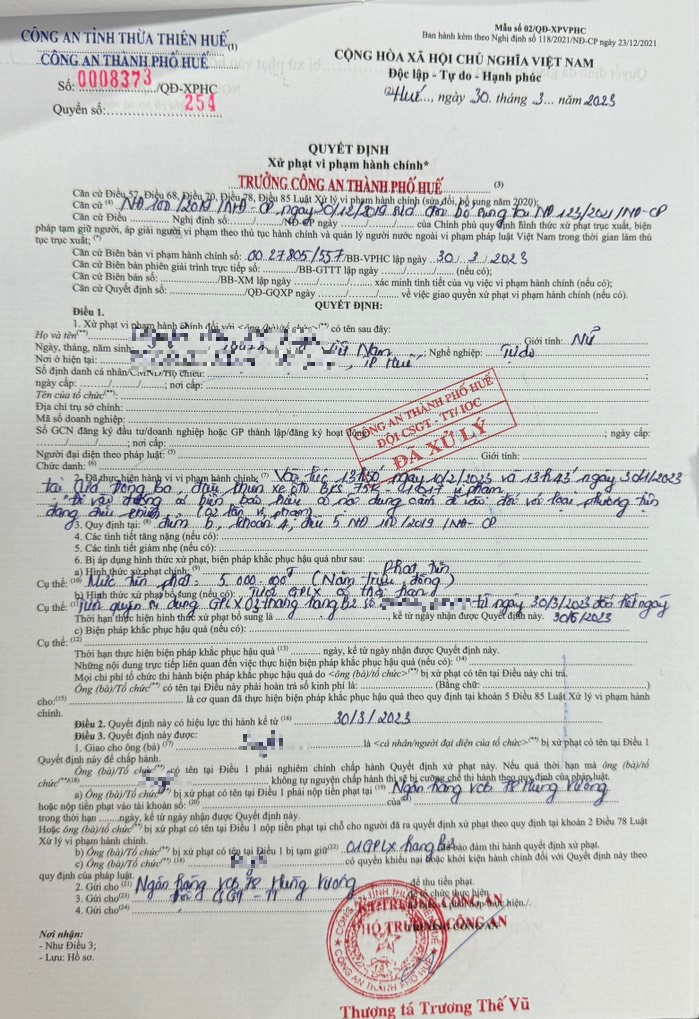 Mẫu số 02/QĐ-XPVPHC
Ban hành kèm theo Nghị định số 118/2021/NĐ-CP ngày 23/12/2021
CÔNG AN TỈNH THỪA THIÊN HUẾ(1)
CÔNG AN THÀNH PHỐ HUẾ
Số: 0008373/QĐ-XPHC
Quyển số: 254
CỘNG HÒA XÃ HỘI CHỦ NGHĨA VIỆT NAM
Độc lập - Tự do - Hạnh phúc
(2)Huế..., ngày 30. tháng 3... năm 2023
QUYẾT ĐỊNH
Xử phạt vi phạm hành chính*
TRƯỞNG CÔNG AN THÀNH PHỐ HUẾ (3)
Căn cứ Điều 57, Điều 68, Điều 70, Điều 78, Điều 85 Luật Xử lý vi phạm hành chính (sửa đổi, bổ sung năm 2020);
Căn cứ (4) NĐ 100/2019/NĐ-CP, ngày 30/12/2019 sửa đổi bổ sung tại NĐ 123/2021/NĐ-CP
Căn cứ Điều ........ Nghị định số:......../NĐ-CP ngày ....../....../...... của Chính phủ quy định hình thức xử phạt trục xuất, biện
pháp tạm giữ người, áp giải người vi phạm theo thủ tục hành chính và quản lý người nước ngoài vi phạm pháp luật Việt Nam trong thời gian làm thủ
tục trục xuất;
Căn cứ Biên bản vi phạm hành chính số: 0027805/557/BB-VPHC lập ngày 30/3/2023
Căn cứ Biên bản phiên giải trình trực tiếp số:......../BB-GTTT lập ngày ....../....../...... (nếu có);
Căn cứ Biên bản số:......../BB-XM lập ngày ....../....../...... xác minh tình tiết của vụ việc vi phạm hành chính (nếu có);
Căn cứ Quyết định số:......../QĐ-GQXP ngày ....../....../...... về việc giao quyền xử phạt vi phạm hành chính (nếu có).
QUYẾT ĐỊNH:
Điều 1.
1. Xử phạt vi phạm hành chính đối với <ông (bà)/tổ chức>(**) có tên sau đây:
Họ và tên(**) Giới tính: Nữ
Ngày, tháng, năm sinh: Việt Nam; Nghề nghiệp: Tự do
Nơi ở hiện tại: TP Huế
Số định danh cá nhân/CMND/Hộ chiếu:
ngày cấp: ....../....../......; nơi cấp:
Tên của tổ chức(**):
Địa chỉ trụ sở chính:
Mã số doanh nghiệp:
Số GCN đăng ký đầu tư/doanh nghiệp hoặc GP thành lập/đăng ký hoạt động; ngày cấp:
....../....../......; nơi cấp:
Người đại diện theo pháp luật: (5) Giới tính:
Chức danh: (6)
CÔNG AN THÀNH PHỐ HUẾ
ĐỘI CSGT - TT/IOC
ĐÃ XỬ LÝ
2. Đã thực hiện hành vi vi phạm hành chính: (7) Vào lúc 13h50 ngày 10/2/2023 và 13h43 ngày 30/1/2023
tại Đống Đa, điều khiển xe ôtô BKS 75K vi phạm
đi vào đường có biển báo hiệu có nội dung cấm đi vào đối với loại phương tiện
đang điều khiển (02 lần vi phạm)
3. Quy định tại: (8) điểm b, khoản 4, điều 5 NĐ 100/2019/NĐ-CP
4. Các tình tiết tăng nặng (nếu có):
5. Các tình tiết giảm nhẹ (nếu có):
6. Bị áp dụng hình thức xử phạt, biện pháp khắc phục hậu quả như sau:
a) Hình thức xử phạt chính: (9) Phạt tiền
Cụ thể: (10) Mức tiền phạt: 5.000.000đ (Năm triệu đồng)
b) Hình thức xử phạt bổ sung (nếu có): Tước GPLX có thời hạn
Cụ thể: (11) Tước quyền sử dụng GPLX 02 tháng hạng B2 số từ ngày 30/3/2023 đến hết ngày
Thời hạn thực hiện hình thức xử phạt bổ sung là, kể từ ngày nhận được Quyết định này. 30/5/2023
c) Biện pháp khắc phục hậu quả (nếu có):
Cụ thể: (12)
Thời hạn thực hiện biện pháp khắc phục hậu quả (13) ........ ngày, kể từ ngày nhận được Quyết định này.
Những nội dung trực tiếp liên quan đến việc thực hiện biện pháp khắc phục hậu quả (nếu có): (14)
Mọi chi phí tổ chức thi hành biện pháp khắc phục hậu quả do <ông (bà)/tổ chức>(**) bị xử phạt có tên tại Điều này chi trả.
Ông (bà)/Tổ chức(**) có tên tại Điều này phải hoàn trả số kinh phí là: ........ (Bằng chữ: ........)
cho:(15) ........ là cơ quan đã thực hiện biện pháp khắc phục hậu quả theo quy định tại khoản 5 Điều 85 Luật Xử lý vi phạm hành
chính.
Điều 2. Quyết định này có hiệu lực thi hành kể từ (16) 30/3/2023
Điều 3. Quyết định này được:
1. Giao cho ông (bà) (17) là <cá nhân/người đại diện của tổ chức>(**) bị xử phạt có tên tại Điều 1
Quyết định này để chấp hành.
Ông (bà)/Tổ chức(**) có tên tại Điều 1 phải nghiêm chỉnh chấp hành Quyết định xử phạt này. Nếu quá thời hạn mà ông (bà)/tổ
chức(**)(18) không tự nguyện chấp hành thì sẽ bị cưỡng chế thi hành theo quy định của pháp luật.
a) Ông (bà)/Tổ chức(**) bị xử phạt có tên tại Điều 1 phải nộp tiền phạt tại (19) Ngân hàng VCB 78 Hùng Vương
hoặc nộp tiền phạt vào tài khoản số: (20) ........ của
trong thời hạn ........ngày, kể từ ngày nhận được Quyết định này.
Hoặc ông (bà)/tổ chức(**) bị xử phạt có tên tại Điều 1 nộp tiền phạt tại chỗ cho người đã ra quyết định xử phạt theo quy định tại khoản 2 Điều 78 Luật
Xử lý vi phạm hành chính.
b) Ông (bà)/Tổ chức(**) bị xử phạt có tên tại Điều 1 bị tạm giữ(22) 01 GPLX hạng B2 bảo đảm thi hành quyết định xử phạt.
c) Ông (bà)/Tổ chức(**) (18) có quyền khiếu nại hoặc khởi kiện hành chính đối với Quyết định này theo
quy định của pháp luật.
2. Gửi cho (21) Ngân hàng VCB 78 Hùng Vương để thu tiền phạt.
3. Gửi cho(23) CSGT - TT để tổ chức thực hiện.
4. Gửi cho(24) phối hợp thực hiện./.
Nơi nhận:
- Như Điều 3;
- Lưu: Hồ sơ.
KT. TRƯỞNG CÔNG AN
PHÓ TRƯỞNG CÔNG AN
CÔNG AN TỈNH THỪA THIÊN HUẾ
CÔNG AN THÀNH PHỐ HUẾ
Thượng tá Trương Thế Vũ